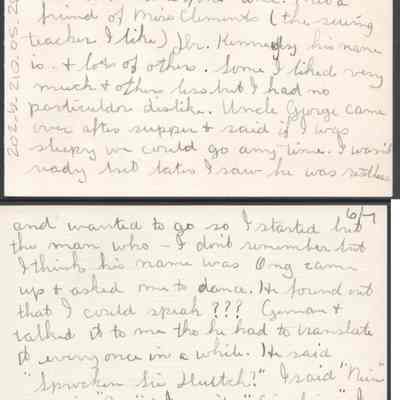 friend of Miss Clements (the sewing
teacher I like) Dr. Kennedy his name
is. & lots of others. Some I liked very
much & others less but I had no
particular dislike. Uncle George came
over after supper & said if I was
sleepy we could go any time. I wasn't
ready but later I saw he was restless
6/7
and wanted to go so I started but
the man who – I don't remember but
I think his name was Ong came
up & asked me to dance. He found out
that I could speak ??? German &
talked it to me tho he had to translate
it every once in a while. He said
"Sprocken Sie Deutch?" I said "Nein"